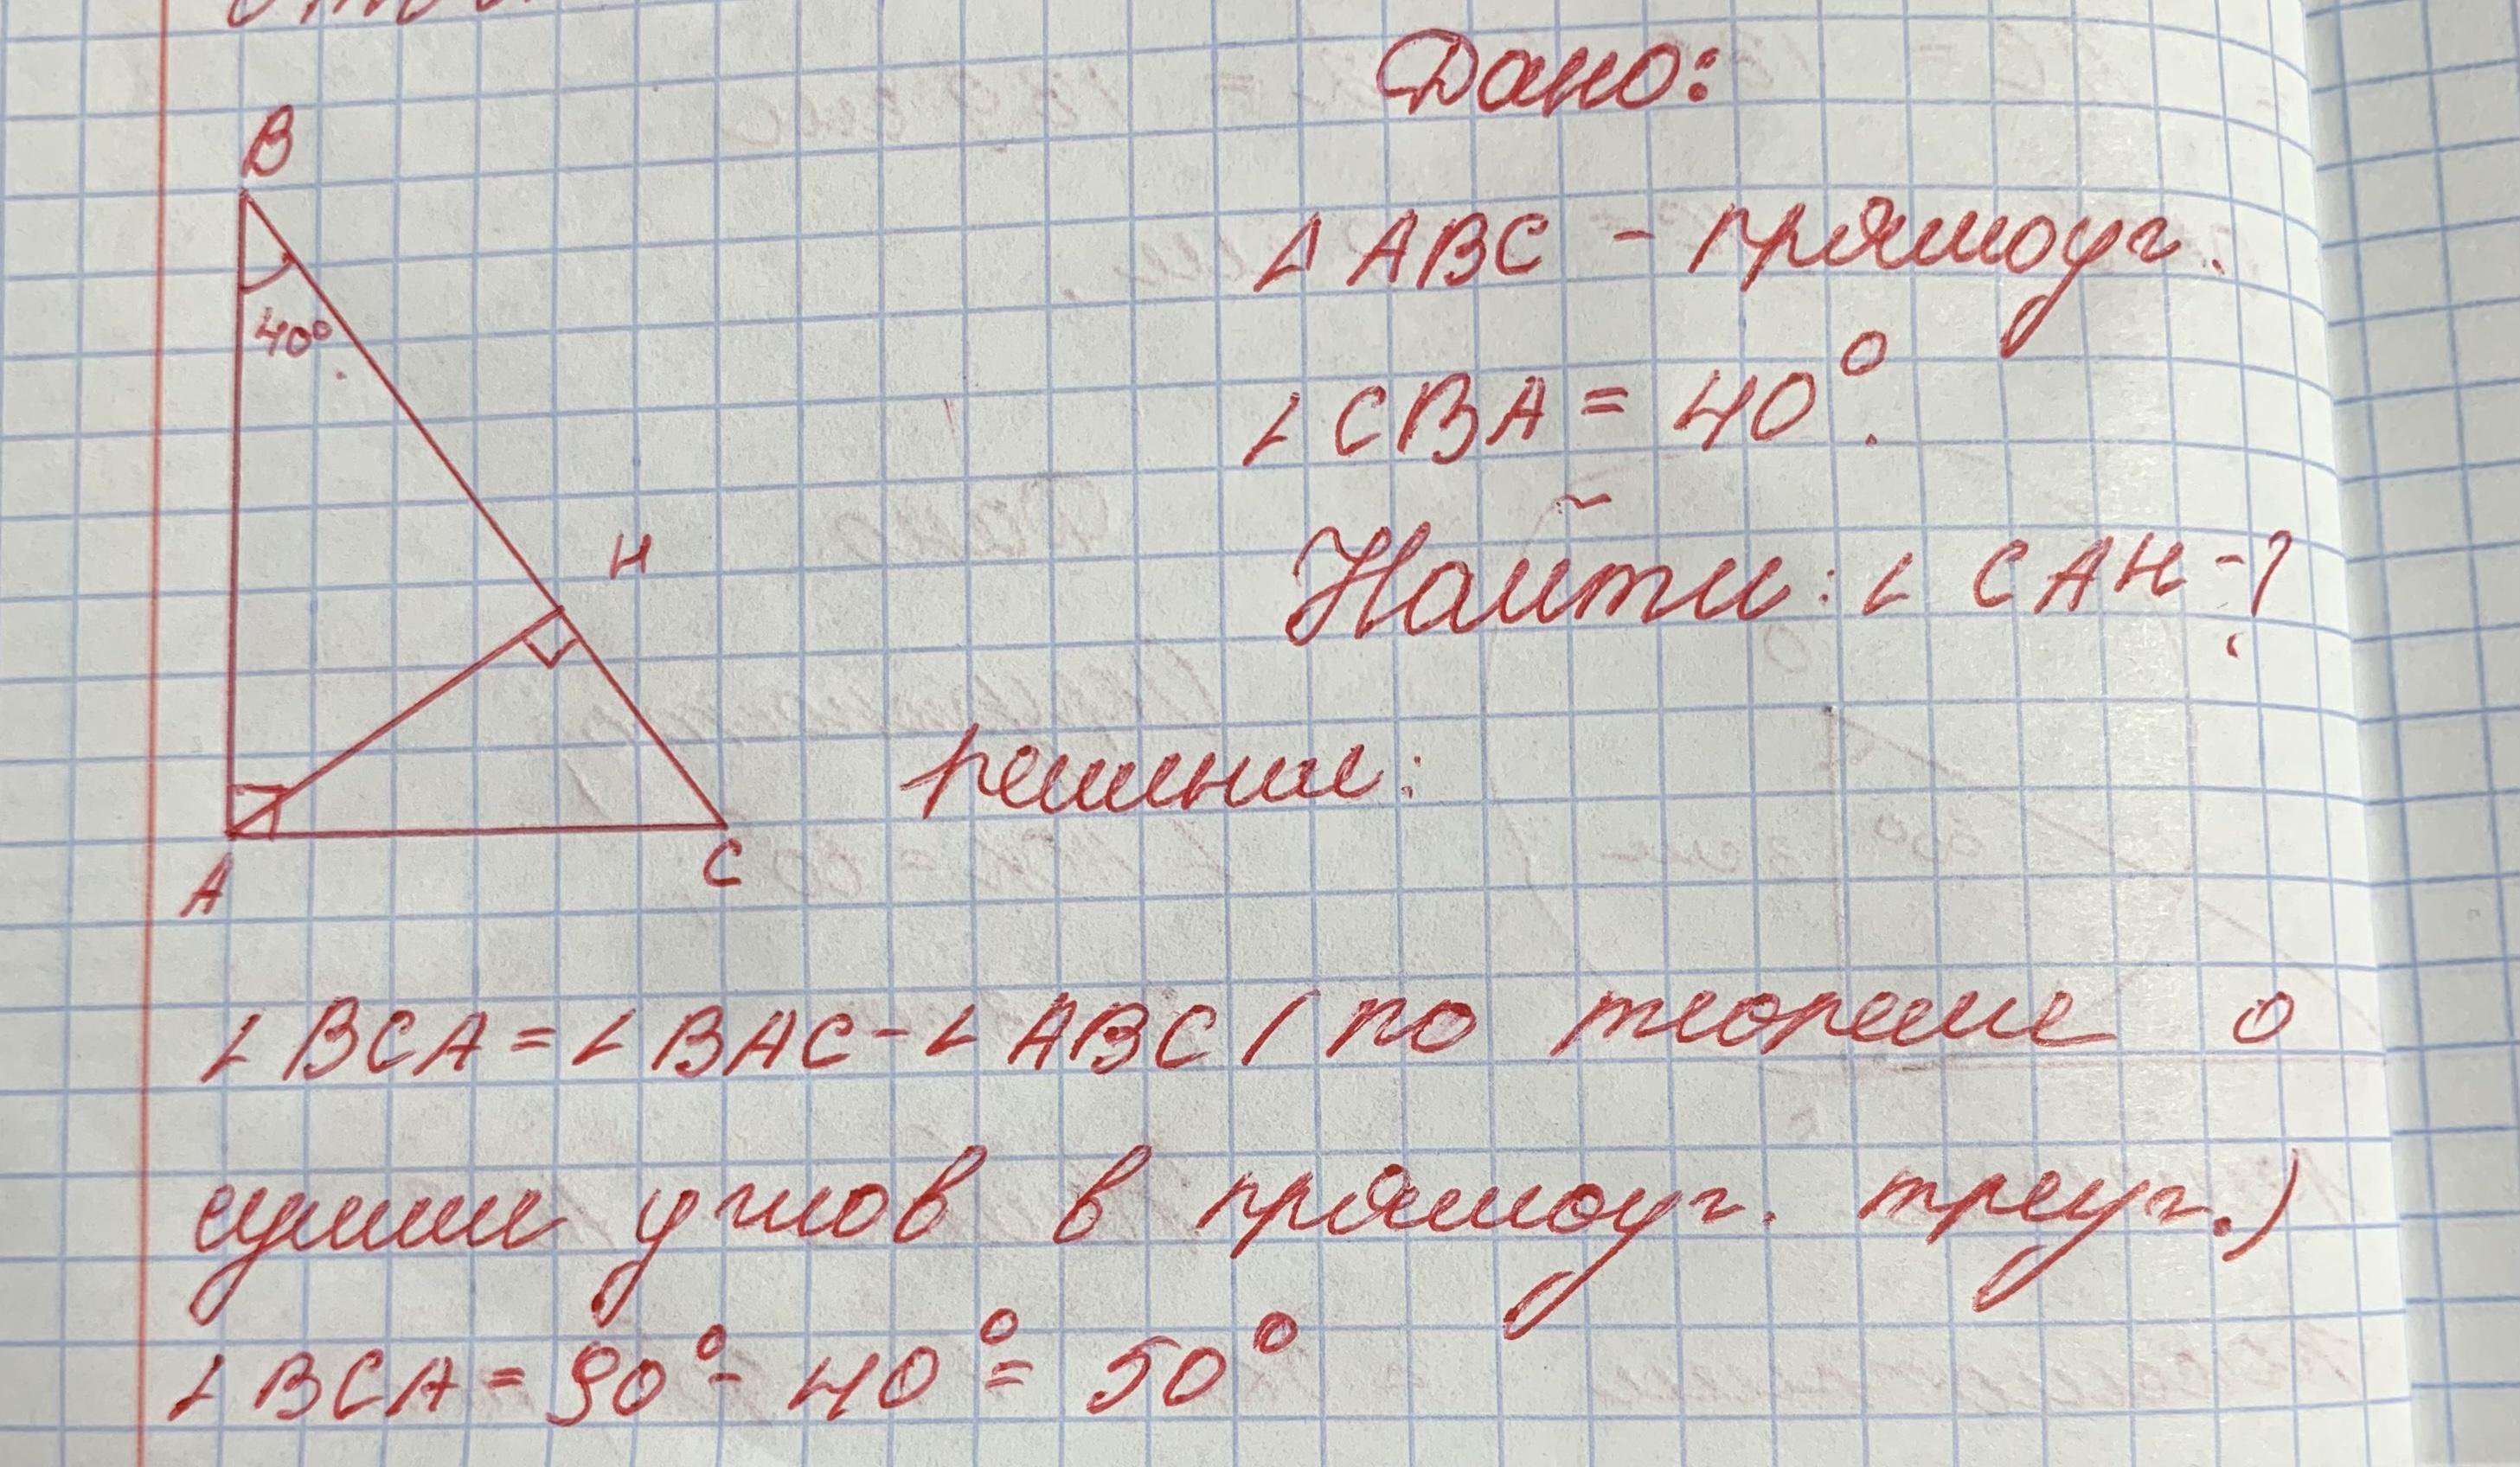 Дано:
B
△ ABC - прямоуг.
40°
∠ CBA = 40°.
H
Найти: ∠ CAH - ?
решение:
A
C
∠ BCA = ∠ BAC - ∠ ABC ( по теореме о
сумме углов в прямоуг. треуг.)
∠ BCA = 90° - 40° = 50°